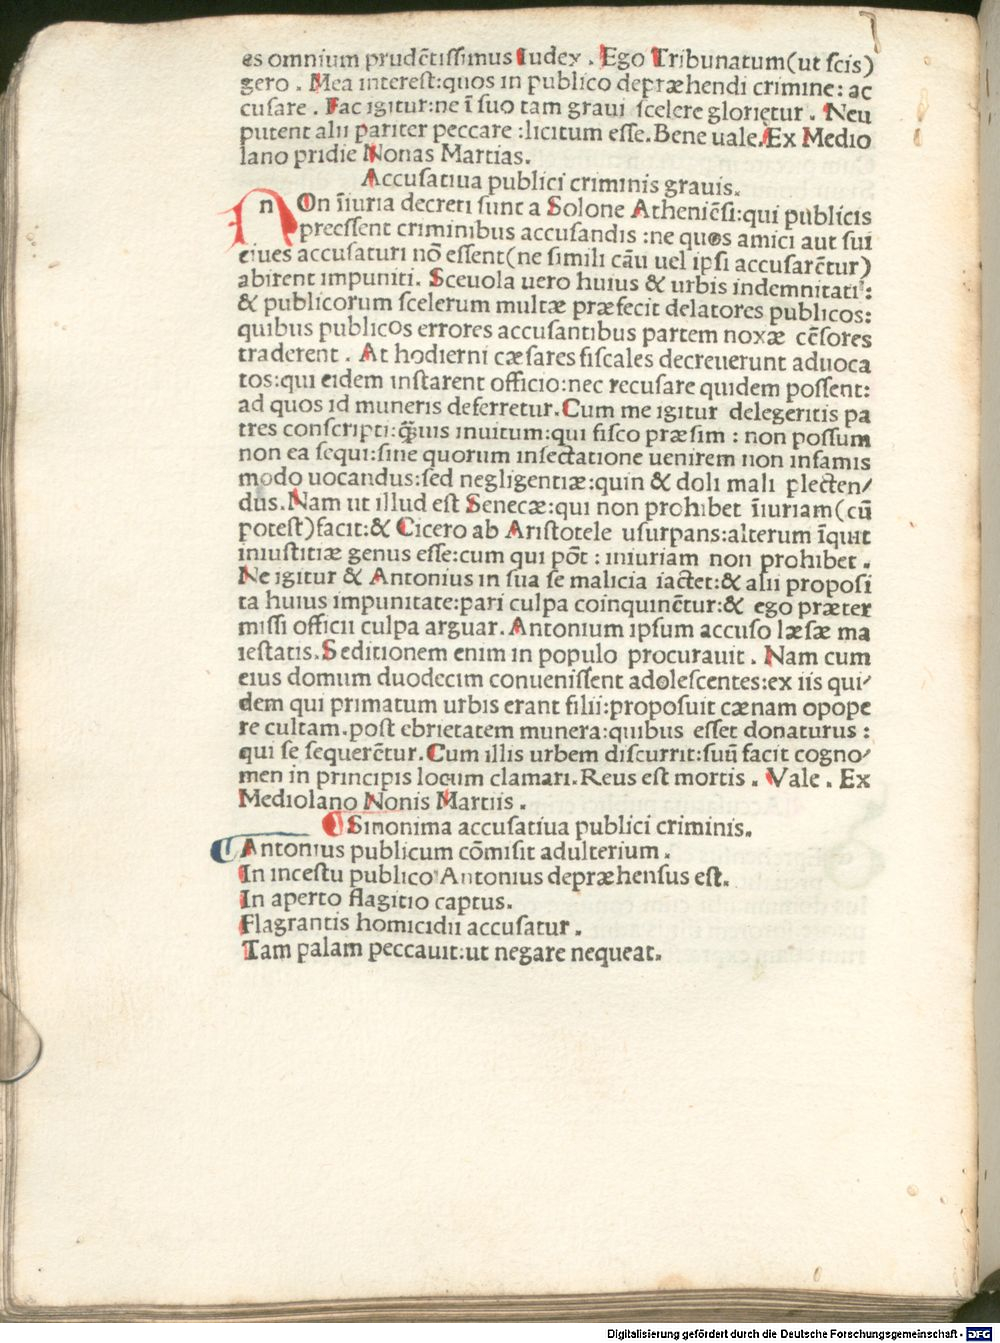 es omnium prudẽtissimus Iudex . Ego Tribunatum(ut scis)
gero . Mea interest:quos in publico depræhendi crimine: ac
cusare . Fac igitur:ne ĩ suo tam graui scelere glorietur . Neu
putent alii pariter peccare :licitum esse. Bene uale. Ex Medio
lano pridie Nonas Martias.
Accusatiua publici criminis grauis.
nOn ĩiuria decreti sunt a Solone Atheniẽsi:qui publicis
preessent criminibus accusandis :ne quos amici aut sui
ciues accusaturi nõ essent(ne simili cãu uel ipsi accusarẽtur)
abirent impuniti. Sceuola uero huius & urbis indemnitati:
& publicorum scelerum multæ præfecit delatores publicos:
quibus publicos errores accusantibus partem noxæ cẽsores
traderent . At hodierni cæsares fiscales decreuerunt aduoca
tos:qui eidem instarent officio:nec recusare quidem possent:
ad quos id muneris deferretur. Cum me igitur delegeritis pa
tres conscripti:q̃uis inuitum:qui fisco præsim : non possum
non ea sequi:sine quorum insectatione uenirem non infamis
modo uocandus:sed negligentiæ:quin & doli mali plecten/
dus. Nam ut illud est Senecæ:qui non prohibet ĩiuriam(cũ
potest)facit:& Cicero ab Aristotele usurpans:alterum ĩquit
iniustitiæ genus esse:cum qui põt : iniuriam non prohibet .
Ne igitur & Antonius in sua se malicia iactet:& alii proposi
ta huius impunitate:pari culpa coinquinẽtur:& ego præter
missi officii culpa arguar. Antonium ipsum accuso læsæ ma
iestatis. Seditionem enim in populo procurauit . Nam cum
eius domum duodecim conuenissent adolescentes:ex iis qui/
dem qui primatum urbis erant filii:proposuit cænam opope
re cultam.post ebrietatem munera:quibus esset donaturus :
qui se sequerẽtur. Cum illis urbem discurrit:suũ facit cogno/
men in principis locum clamari. Reus est mortis . Vale . Ex
Mediolano Nonis Martiis .
Sinonima accusatiua publici criminis.
Antonius publicum cõmisit adulterium .
In incestu publico Antonius depræhensus est.
In aperto flagitio captus.
Flagrantis homicidii accusatur .
Tam palam peccauit:ut negare nequeat.
Digitalisierung gefördert durch die Deutsche Forschungsgemeinschaft - DFG